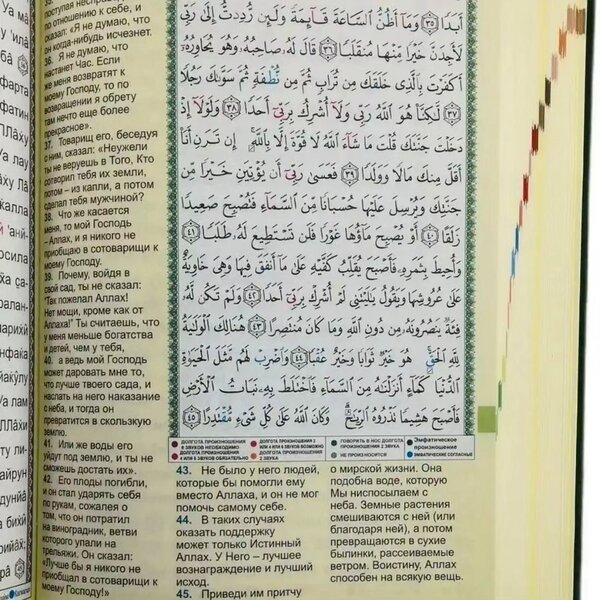 أَبَدًا ٣٥ وَمَآ أَظُنُّ ٱلسَّاعَةَ قَآئِمَةً وَلَئِن رُّدِدتُّ إِلَىٰ رَبِّى
لَأَجِدَنَّ خَيْرًا مِّنْهَا مُنقَلَبًا ٣٦ قَالَ لَهُۥ صَاحِبُهُۥ وَهُوَ يُحَاوِرُهُۥٓ
أَكَفَرْتَ بِٱلَّذِى خَلَقَكَ مِن تُرَابٍ ثُمَّ مِن نُّطْفَةٍ ثُمَّ سَوَّىٰكَ رَجُلًا
٣٧ لَّٰكِنَّا۠ هُوَ ٱللَّهُ رَبِّى وَلَآ أُشْرِكُ بِرَبِّىٓ أَحَدًا ٣٨ وَلَوْلَآ إِذْ
دَخَلْتَ جَنَّتَكَ قُلْتَ مَا شَآءَ ٱللَّهُ لَا قُوَّةَ إِلَّا بِٱللَّهِ ۚ إِن تَرَنِ أَنَا۠
أَقَلَّ مِنكَ مَالًا وَوَلَدًا ٣٩ فَعَسَىٰ رَبِّىٓ أَن يُؤْتِيَنِ خَيْرًا مِّن
جَنَّتِكَ وَيُرْسِلَ عَلَيْهَا حُسْبَانًا مِّنَ ٱلسَّمَآءِ فَتُصْبِحَ صَعِيدًا
زَلَقًا ٤٠ أَوْ يُصْبِحَ مَآؤُهَا غَوْرًا فَلَن تَسْتَطِيعَ لَهُۥ طَلَبًا ٤١
وَأُحِيطَ بِثَمَرِهِۦ فَأَصْبَحَ يُقَلِّبُ كَفَّيْهِ عَلَىٰ مَآ أَنفَقَ فِيهَا وَهِىَ خَاوِيَةٌ
عَلَىٰ عُرُوشِهَا وَيَقُولُ يَٰلَيْتَنِى لَمْ أُشْرِكْ بِرَبِّىٓ أَحَدًا ٤٢ وَلَمْ تَكُن لَّهُۥ
فِئَةٌ يَنصُرُونَهُۥ مِن دُونِ ٱللَّهِ وَمَا كَانَ مُنتَصِرًا ٤٣ هُنَالِكَ ٱلْوَلَٰيَةُ
لِلَّهِ ٱلْحَقِّ ۚ هُوَ خَيْرٌ ثَوَابًا وَخَيْرٌ عُقْبًا ٤٤ وَٱضْرِبْ لَهُم مَّثَلَ ٱلْحَيَوٰةِ
ٱلدُّنْيَا كَمَآءٍ أَنزَلْنَٰهُ مِنَ ٱلسَّمَآءِ فَٱخْتَلَطَ بِهِۦ نَبَاتُ ٱلْأَرْضِ
فَأَصْبَحَ هَشِيمًا تَذْرُوهُ ٱلرِّيَٰحُ ۗ وَكَانَ ٱللَّهُ عَلَىٰ كُلِّ شَىْءٍ مُّقْتَدِرًا ٤٥
по отношению к себе, и
сказал: «Я не думаю, что
он когда-нибудь исчезнет.
36. Я не думаю, что
настанет Час. Если
же меня возвратят к
моему Господу, то по
возвращении я обрету
там нечто еще более
прекрасное».
37. Товарищ его, беседуя
с ним, сказал: «Неужели
ты не веруешь в Того, Кто
сотворил тебя их земли,
потом – из капли, а потом
сделал тебя мужчиной?
38. Что же касается
меня, то мой Господь
– Аллах, и я никого не
приобщаю в сотоварищи к
моему Господу.
39. Почему, войдя в
свой сад, ты не сказал:
"Так пожелал Аллах!
Нет мощи, кроме как от
Аллаха!" Ты считаешь, что
у меня меньше богатства
и детей, чем у тебя,
40. а ведь мой Господь
может даровать мне то,
что лучше твоего сада, и
наслать на него наказание
с неба, и тогда он
превратится в скользкую
землю.
41. Или же воды его
уйдут под землю, и ты не
сможешь достать их».
42. Его плоды погибли,
и он стал ударять себя
по рукам, сожалея о
том, что он потратил
на виноградник, ветви
которого упали на
трельяжи. Он сказал:
«Лучше бы я никого не
приобщал в сотоварищи к
моему Господу!»
ДОЛГОТА ПРОИЗНОШЕНИЯ
6 ЗВУКОВ НЕОБХОДИМО
ДОЛГОТА ПРОИЗНОШЕНИЯ
4 или 6 ЗВУКОВ ОБЯЗАТЕЛЬНО
ДОЛГОТА ПРОИЗНОШЕНИЯ 2
ИЛИ 4 ИЛИ 6 ЗВУКОВ ВОЗМОЖНО
ДОЛГОТА ПРОИЗНОШЕНИЯ
2 ЗВУКА
ГОВОРИТЬ В НОС ДОЛГОТА
ПРОИЗНОШЕНИЯ 2 ЗВУКА
НЕ ПРОИЗНОСИТСЯ
Эмфатическое
произношение
ЭМФАТИЧЕСКИЕ СОГЛАСНЫЕ
43. Не было у него людей,
которые бы помогли ему
вместо Аллаха, и он не мог
помочь самому себе.
44. В таких случаях
оказать поддержку
может только Истинный
Аллах. У Него – лучшее
вознаграждение и лучший
исход.
45. Приведи им притчу
о мирской жизни. Она
подобна воде, которую
Мы ниспослаем с
неба. Земные растения
смешиваются с ней (или
благодаря ней), а потом
превращаются в сухие
былинки, рассеиваемые
ветром. Воистину, Аллах
способен на всякую вещь.